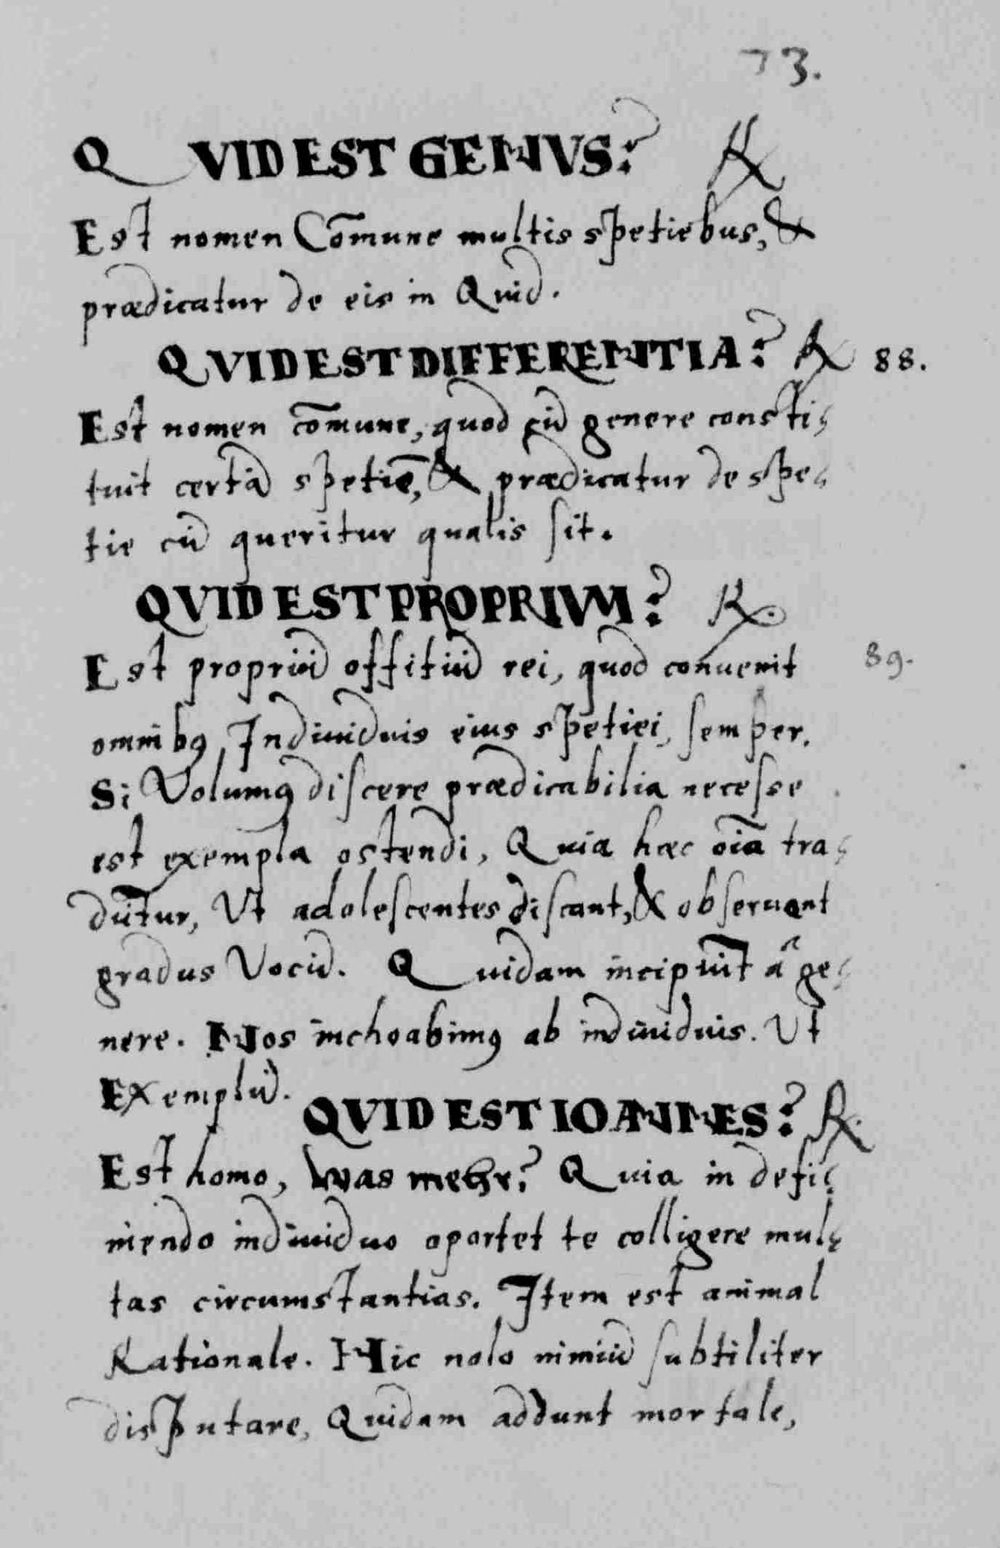 73.
QVID EST GENVS? ℞
Est nomen Com̄une multis spetiebus, &
prædicatur de eis in Quid.
QVID EST DIFFERENTIA? ℞ 88.
Est nomen com̄une, quod cū genere consti⸗
tuit certā spetiē, & prædicatur de spe⸗
tie cū queritur qualis sit.
QVID EST PROPRIVM? ℞.
Est propriū offitiū rei, quod conuenit 89.
omnibꝰ Indiuiduis eius spetiei, semper.
Si Volumꝰ discere prædicabilia necesse
est exempla ostendi, Quia hæc oīa tra⸗
dūtur, Ut adolescentes discant, & obseruent
gradus Vocū. Quidam incipiūt â ge⸗
nere. Nos inchoabimꝰ ab indiuiduis. Ut
Exemplū.
QVID EST IOANNES? ℞.
Est homo, was mehr? Quia in defi⸗
niendo indiuiduo oportet te colligere mul⸗
tas circumstantias. Item est animal
Rationale. Hic nolo nimiū subtiliter
disputare, Quidam addunt mortale,